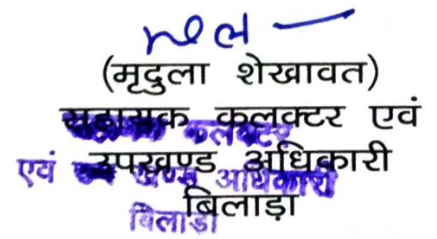 (मृदुला शेखावत)
सहायक कलक्टर एवं
उपखण्ड अधिकारी
बिलाड़ा
कलक्टर
एवं उप खण्ड अधिकारी
बिलाड़ा